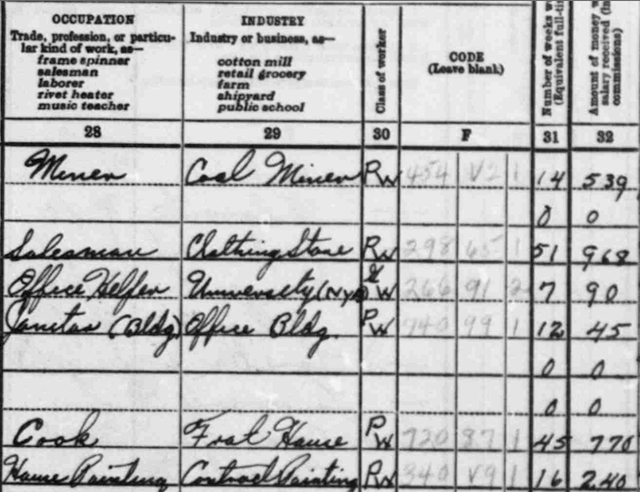 OCCUPATION INDUSTRY
Trade, profession, or particu-
lar kind of work, as—
frame spinner
salesman
laborer
rivet heater
music teacher
Industry or business, as—
cotton mill
retail grocery
farm
shipyard
public school
Class of worker
CODE
(Leave blank)
Number of weeks
(Equivalent full-ti
Amount of money
salary received (In
commissions)
28 29 30 F 31 32
Miner Coal Miner PW 454 V2 1 14 539
0 0
Salesman Clothing Store PW 298 65 1 51 968
Office Helper University (NYA) GW 266 91 2 7 90
Janitor (Bldg) Office Bldg. PW 940 99 1 12 45
0 0
0 0
Cook Frat House PW 720 87 1 45 770
House Painting Contract Painting PW 340 V9 1 16 240